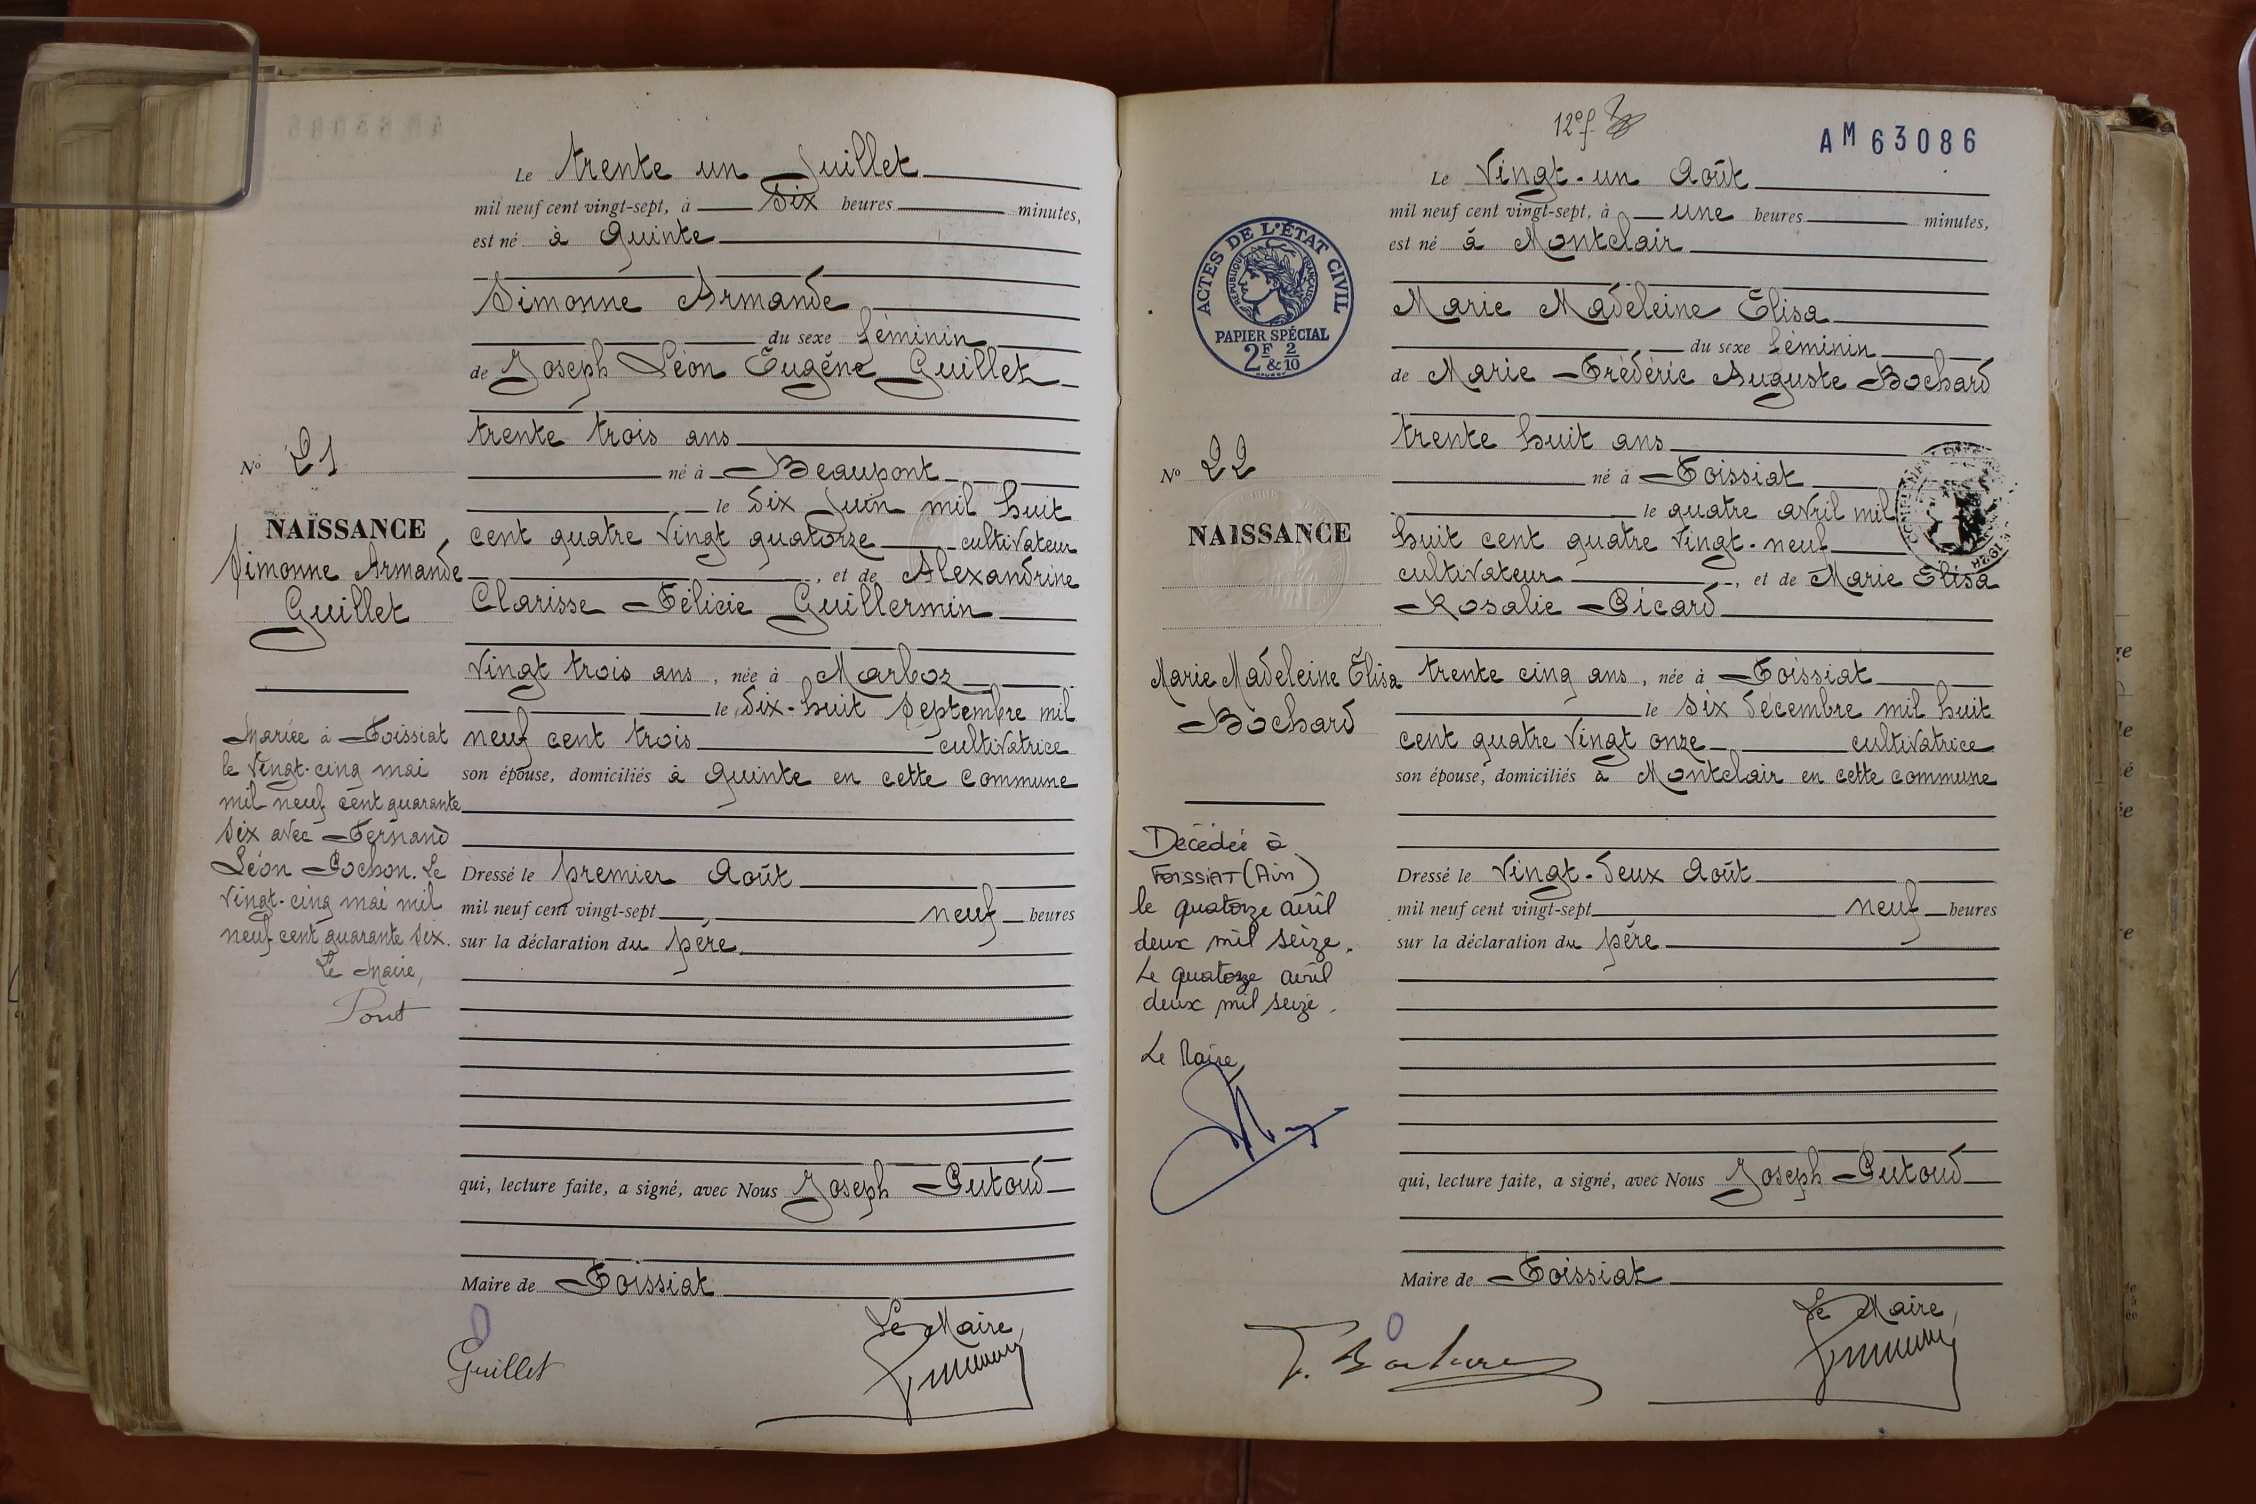 Le trente un Juillet
mil neuf cent vingt-sept, à six heures minutes,
est né à Quinte
Simonne Armande
du sexe féminin
de Joseph Léon Eugène Guillet
trente trois ans
né à Beaupont
le six Juin mil huit
cent quatre vingt quatorze cultivateur
, et de Alexandrine
Clarisse Félicie Guillermin
vingt trois ans, née à Marboz
le dix-huit Septembre mil
neuf cent trois cultivatrice
son épouse, domiciliés à Quinte en cette commune
Dressé le premier Août
mil neuf cent vingt-sept, neuf heures
sur la déclaration du père
qui, lecture faite, a signé, avec Nous Joseph Putoud
Maire de Foissiat
Le Maire,
Guillet
No 21
NAISSANCE
Simonne Armande
Guillet
Mariée à Foissiat
le vingt-cinq mai
mil neuf cent quarante
six avec Fernand
Léon Pochon. Le
vingt-cinq mai mil
neuf cent quarante six.
Le Maire,
Pont
12e f.
AM 63086
Le Vingt-un Août
mil neuf cent vingt-sept, à une heures minutes,
est né à Montclair
Marie Madeleine Elisa
du sexe féminin
de Marie Frédéric Auguste Bochard
trente huit ans
né à Foissiat
le quatre avril mil
huit cent quatre vingt-neuf
cultivateur, et de Marie Elisa
Rosalie Picard
trente cinq ans, née à Foissiat
le six décembre mil huit
cent quatre vingt onze cultivatrice
son épouse, domiciliés à Montclair en cette commune
Dressé le vingt-deux Août
mil neuf cent vingt-sept neuf heures
sur la déclaration du père
qui, lecture faite, a signé, avec Nous Joseph Putoud
Maire de Foissiat
Le Maire,
F. Bochard
ACTES DE L'ÉTAT CIVIL
RÉPUBLIQUE FRANÇAISE
PAPIER SPÉCIAL
2F & 2/10
No 22
NAISSANCE
Marie Madeleine Elisa
Bochard
Décédée à
FOISSIAT (Ain)
le quatorze avril
deux mil seize.
Le quatorze avril
deux mil seize.
Le Maire